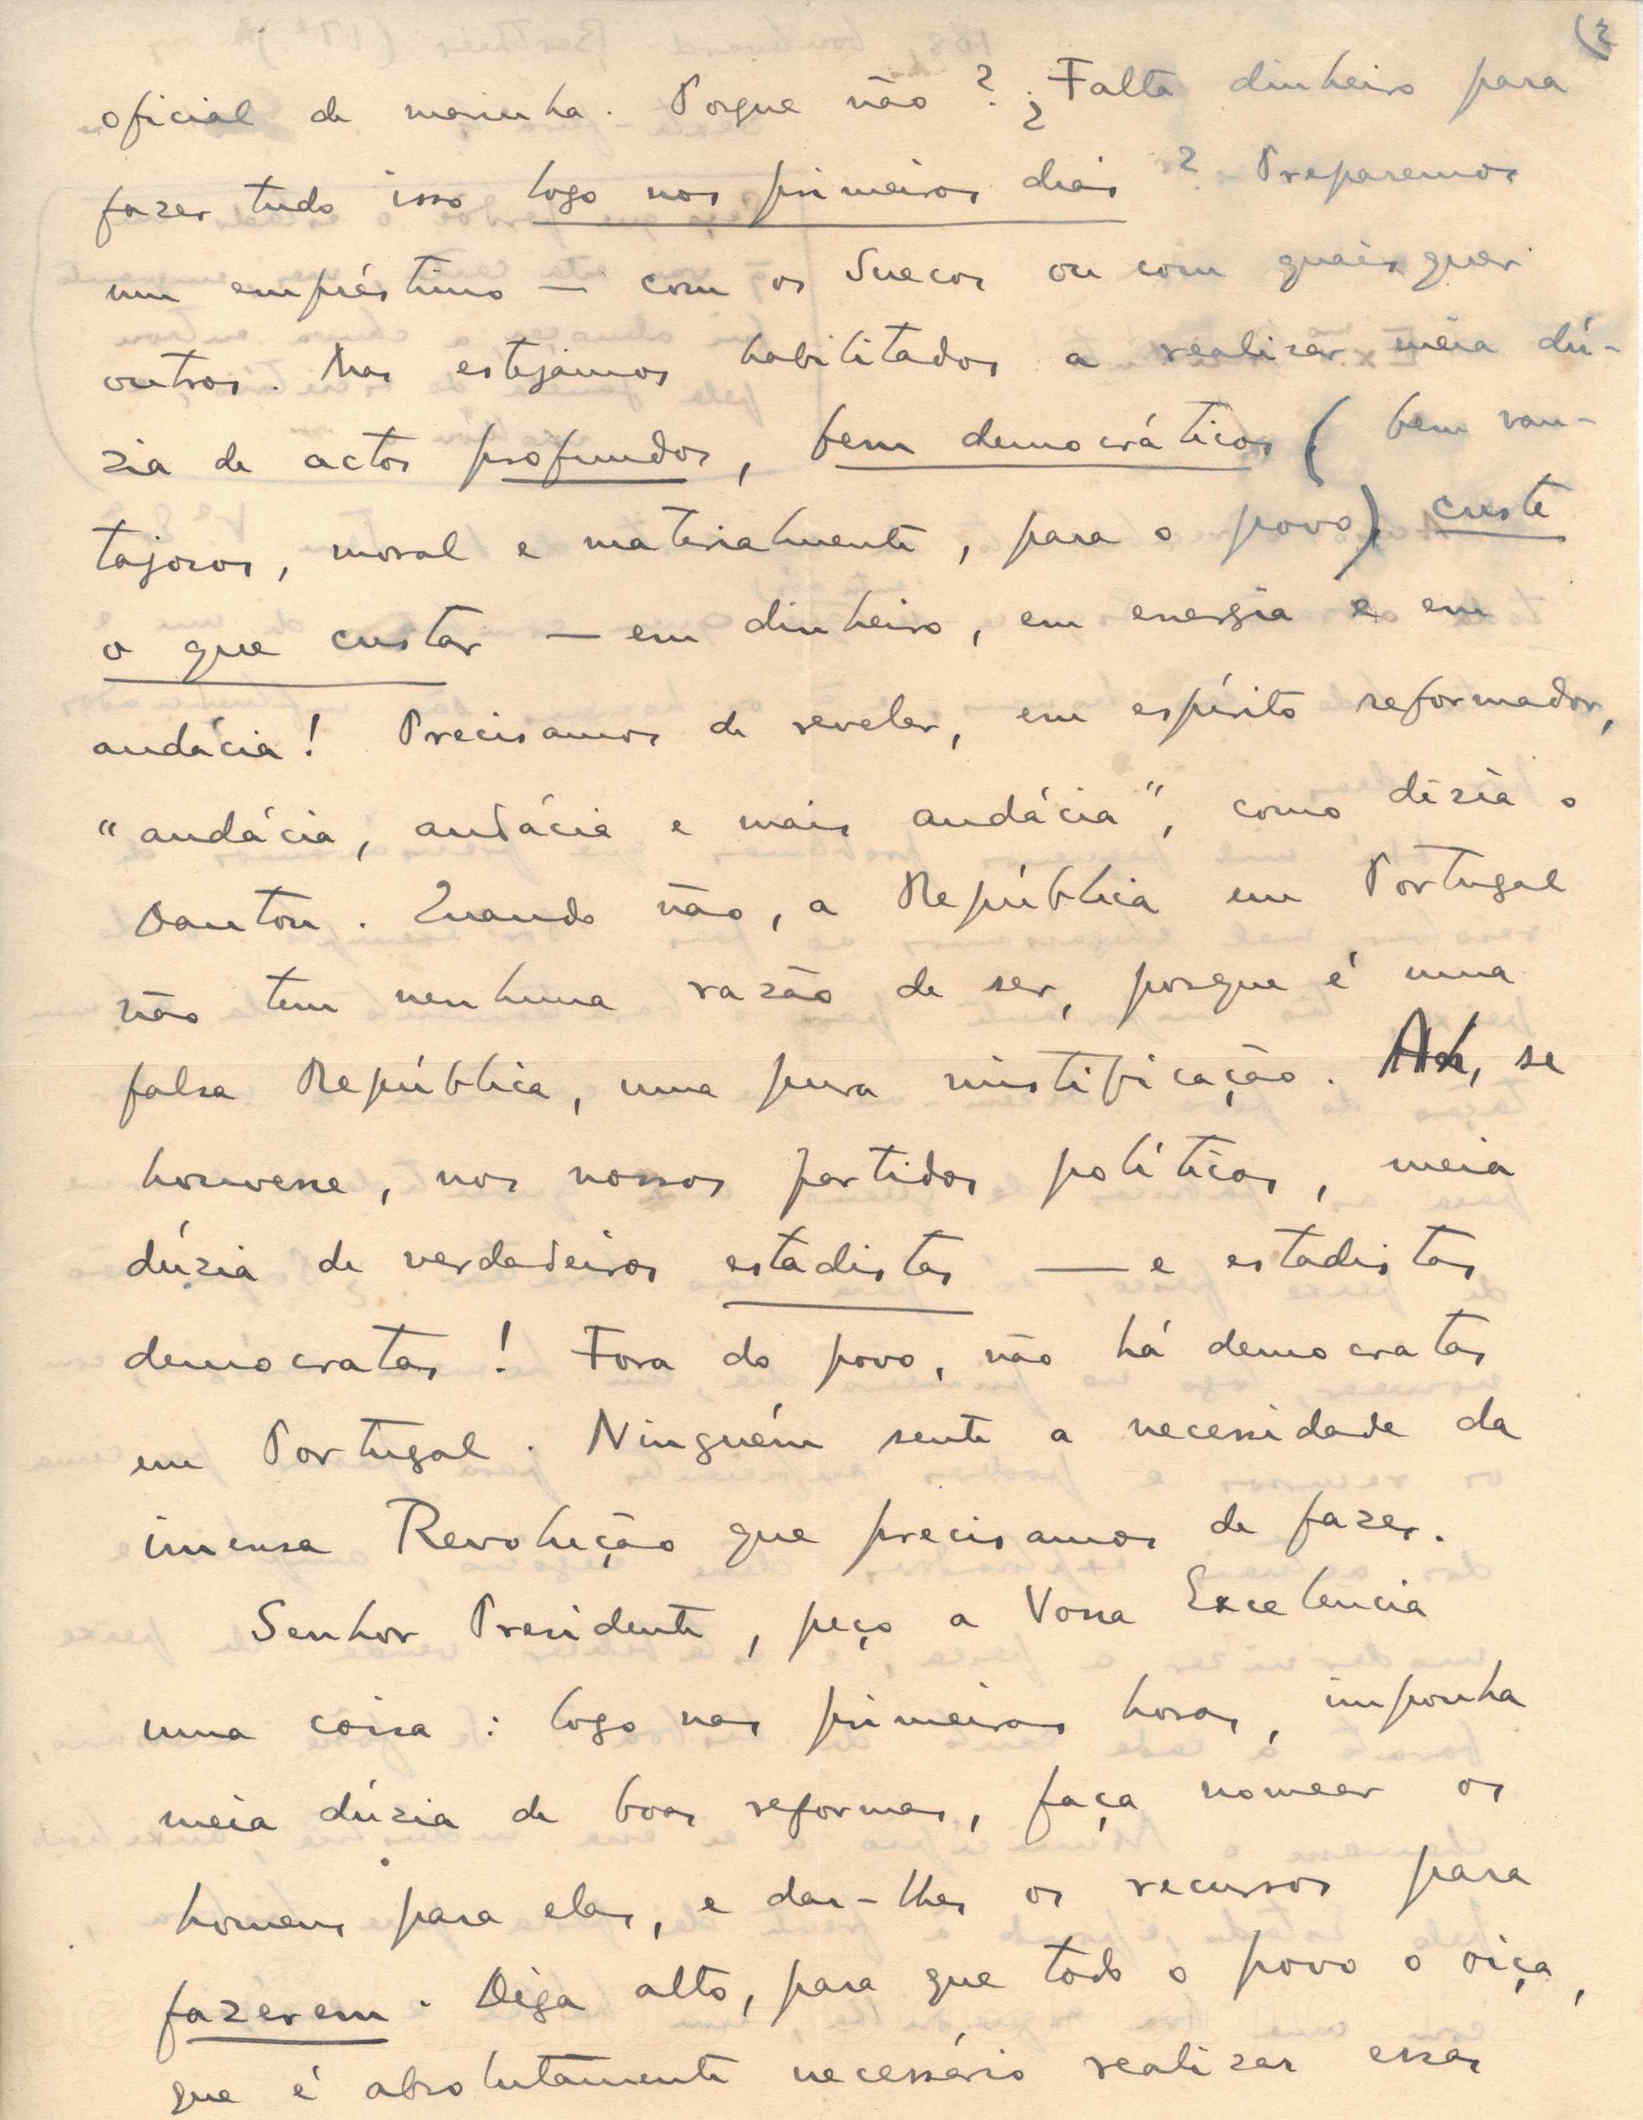 (2
oficial de marinha. Porque não? ¿Falta dinheiro para
fazer tudo isso logo nos primeiros dias? Preparemos
um empréstimo — com os Suecos ou com quaisquer
outros. Mas estejamos habilitados a realizar meia dú-
zia de actos profundos, bem democráticos (bem van-
tajosos, moral e materialmente, para o povo) custe
o que custar — em dinheiro, em energia e em
audácia! Precisamos de revelar, em espírito reformador,
"audácia, audácia e mais audácia", como dizia o
Danton. Quando não, a República em Portugal
não tem nenhuma razão de ser, porque é uma
falsa República, uma pura mistificação. Ah, se
houvesse, nos nossos partidos políticos, meia
dúzia de verdadeiros estadistas — e estadistas
democratas! Fora do povo, não há democratas
em Portugal. Ninguém sente a necessidade da
imensa Revolução que precisamos de fazer.
Senhor Presidente, peço a Vossa Excelencia
uma coisa: logo nas primeiras horas, imponha
meia dúzia de boas reformas, faça nomear os
homens para elas, e dar-lhes os recursos para
fazerem. Diga alto, para que todo o povo o oiça,
que é absolutamente necessário realizar essas